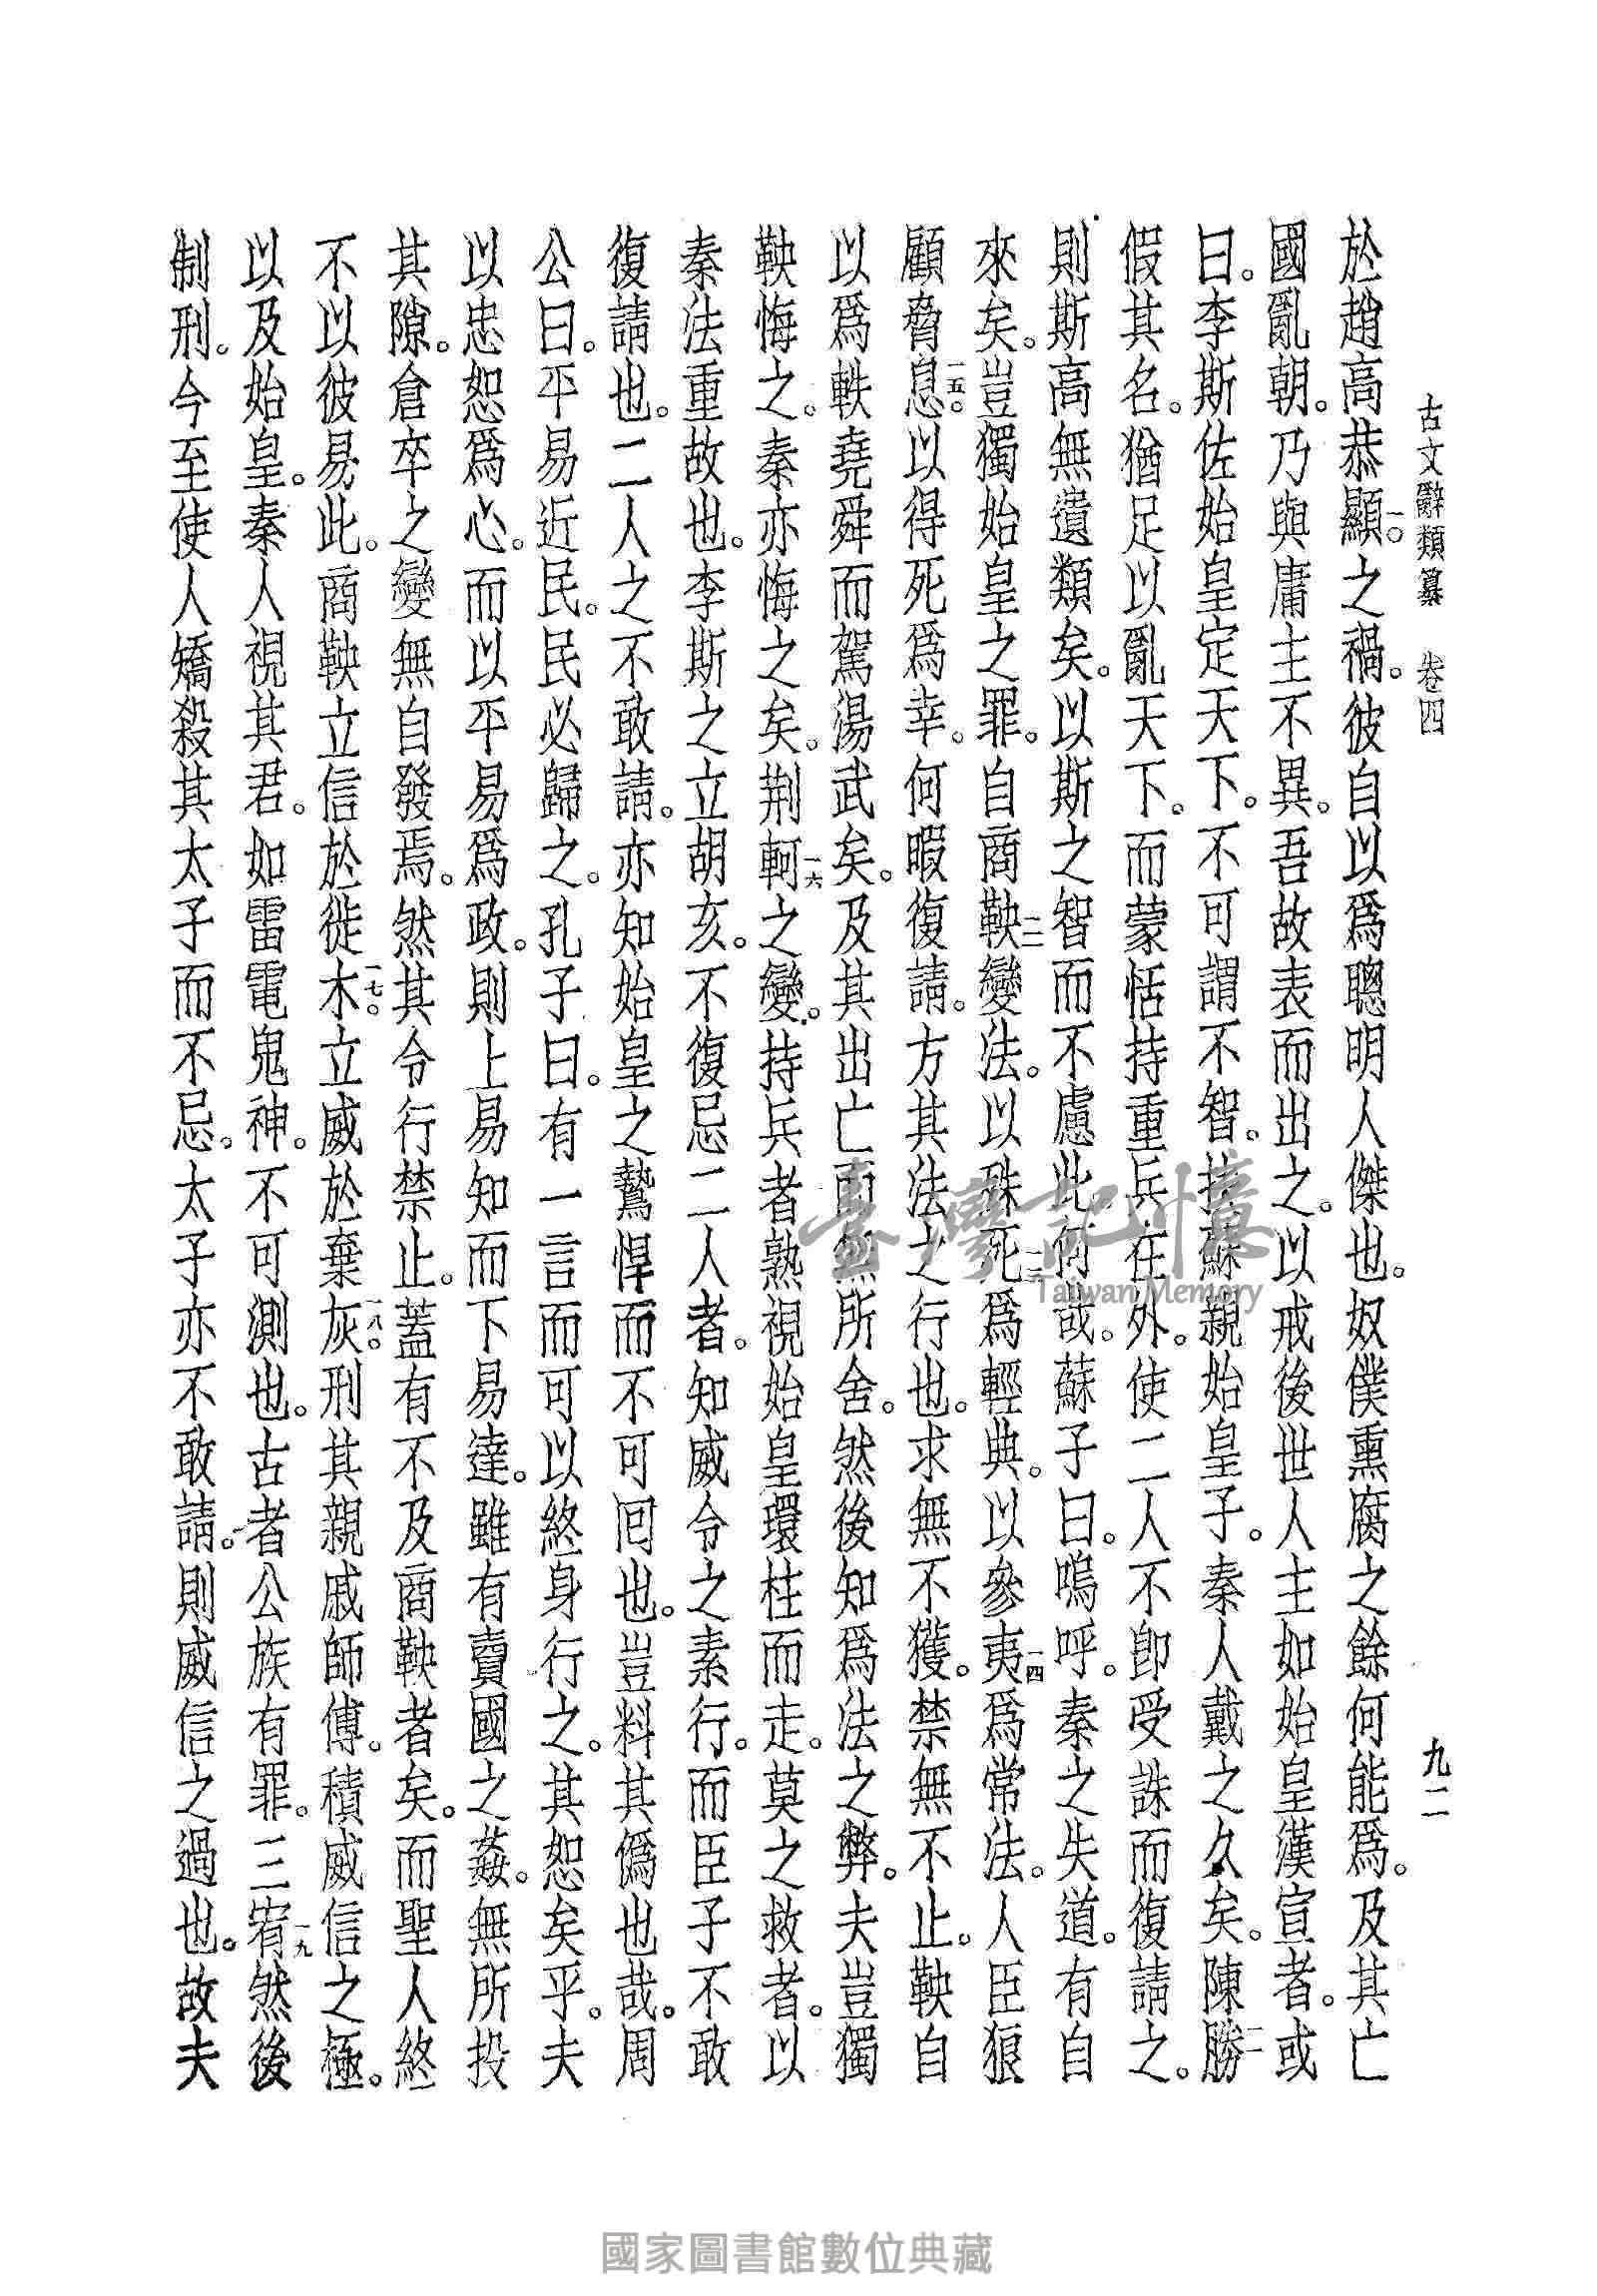 古文辭類纂　卷四　九二
於趙高恭顯一〇。之禍。彼自以爲聰明人傑也。奴僕熏腐之餘何能爲。及其亡
國亂朝。乃與庸主不異。吾故表而出之。以戒後世人主如始皇漢宣者。或
曰。李斯佐始皇定天下。不可謂不智。扶蘇親始皇子。秦人戴之久矣。陳勝一一
假其名。猶足以亂天下。而蒙恬持重兵在外。使二人不卽受誅而復請之。
則斯高無遺類矣。以斯之智而不慮此何哉。蘇子曰。嗚呼。秦之失道。有自
來矣。豈獨始皇之罪。自商鞅一二變法。以殊死一三爲輕典。以參夷一四爲常法。人臣狼
顧脅息一五。以得死爲幸。何暇復請。方其法之行也。求無不獲。禁無不止。鞅自
以爲軼堯舜而駕湯武矣。及其出亡而無所舍。然後知爲法之弊。夫豈獨
鞅悔之。秦亦悔之矣。荆軻一六之變。持兵者熟視始皇環柱而走。莫之救者。以
秦法重故也。李斯之立胡亥。不復忌二人者。知威令之素行。而臣子不敢
復請也。二人之不敢請。亦知始皇之鷙悍而不可回也。豈料其僞也哉。周
公曰。平易近民。民必歸之。孔子曰。有一言而可以終身行之。其恕矣乎。夫
以忠恕爲心。而以平易爲政。則上易知而下易達。雖有賣國之姦。無所投
其隙。倉卒之變無自發焉。然其令行禁止。蓋有不及商鞅者矣。而聖人終
不以彼易此。商鞅立信於徙木一七。立威於棄灰一八。刑其親戚師傅。積威信之極。
以及始皇。秦人視其君。如雷電鬼神。不可測也。古者公族有罪。三宥一九然後
制刑。今至使人矯殺其太子而不忌。太子亦不敢請。則威信之過也。故夫
臺灣記憶
Taiwan Memory
國家圖書館數位典藏